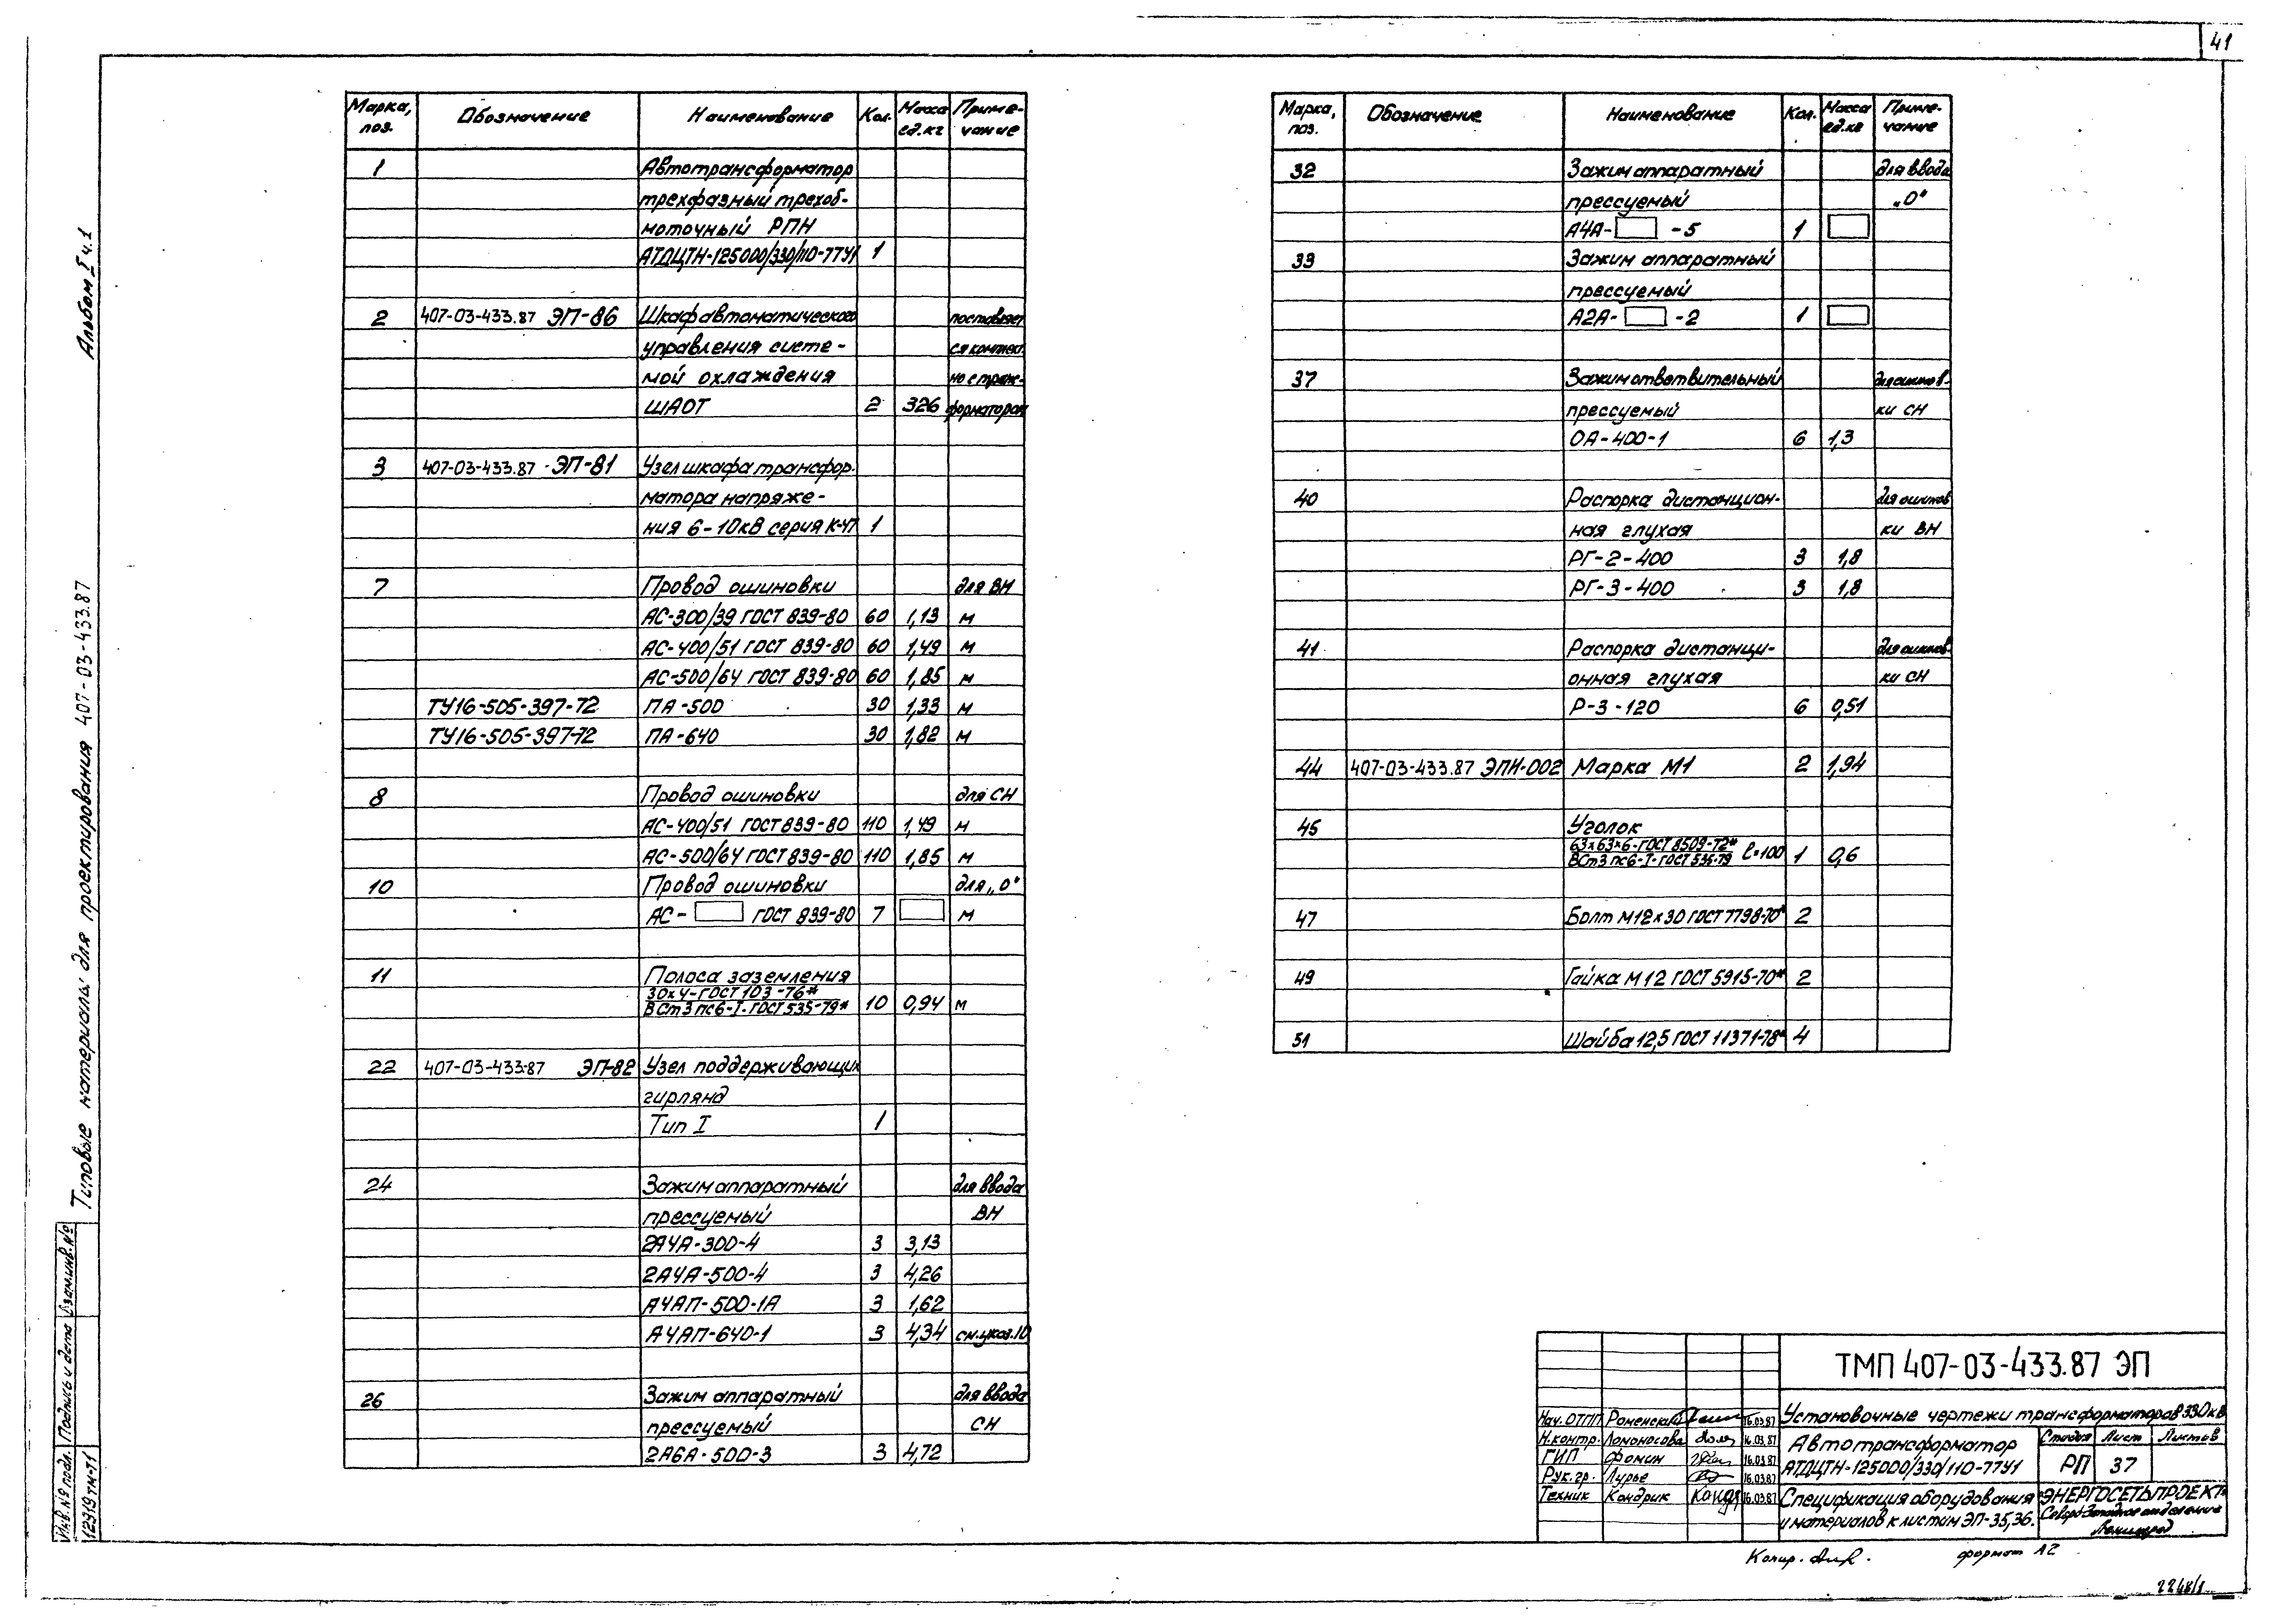 41
Альбом I ч.1
Типовые материалы для проектирования 407-03-433.87
Взам.инв.№
Подпись и дата
Инв.№ подл.
12319тм-т1
Марка, поз. Обозначение Наименование Кол. Масса ед.кг Приме-чание
1 Автотрансформатор
трехфазный трехоб-
моточный РПН
АТДЦТН-125000/330/110-77У1 1
2 407-03-433.87 ЭП-86 Шкаф автоматического поставляет
управления систе- ся комплект.
мой охлаждения но с транс-
ШАОТ 2 326 форматором
3 407-03-433.87 -ЭП-81 Узел шкафа трансфор-
матора напряже-
ния 6-10кВ серия К-47 1
7 Провод ошиновки для ВН
АС-300/39 ГОСТ 839-80 60 1,13 м
АС-400/51 ГОСТ 839-80 60 1,49 м
АС-500/64 ГОСТ 839-80 60 1,85 м
ТУ16-505-397-72 ПА-500 30 1,33 м
ТУ16-505-397-72 ПА-640 30 1,82 м
8 Провод ошиновки для СН
АС-400/51 ГОСТ 839-80 110 1,49 м
АС-500/64 ГОСТ 839-80 110 1,85 м
10 Провод ошиновки для „0"
АС- ГОСТ 839-80 7 м
11 Полоса заземления
30х4-ГОСТ 103-76*
ВСт3пс6-I-ГОСТ 535-79* 10 0,94 м
22 407-03-433.87 ЭП-82 Узел поддерживающих
гирлянд
Тип I 1
24 Зажим аппаратный для ввода
прессуемый ВН
2А4А-300-4 3 3,13
2А4А-500-4 3 4,26
А4АП-500-1А 3 1,62
А4АП-640-1 3 4,34 см.указ.10
26 Зажим аппаратный для ввода
прессуемый СН
2А6А-500-3 3 4,72
Марка, поз. Обозначение Наименование Кол. Масса ед.кг Приме-чание
32 Зажим аппаратный для ввода
прессуемый „0"
А4А- -5 1
33 Зажим аппаратный
прессуемый
А2А- -2 1
37 Зажим ответвительный для ошинов-
прессуемый ки СН
ОА-400-1 6 1,3
40 Распорка дистанцион- для ошинов
ная глухая ки ВН
РГ-2-400 3 1,8
РГ-3-400 3 1,8
41 Распорка дистанци- для ошинов-
онная глухая ки СН
Р-3-120 6 0,51
44 407-03-433.87 ЭПИ-002 Марка М1 2 1,94
45 Уголок
63х63х6-ГОСТ 8509-72*
ВСт3пс6-I-ГОСТ 535-79 ℓ=100 1 0,6
47 Болт М12х30 ГОСТ 7798-70* 2
49 Гайка М12 ГОСТ 5915-70* 2
51 Шайба 12,5 ГОСТ 11371-78* 4
ТМП 407-03-433.87 ЭП
Установочные чертежи трансформаторов 330кВ
Нач.ОТПП Роменский 16.03.87
Н.контр. Ломоносова 16.03.87
ГИП Фомин 16.03.87
Рук.гр. Лурье 16.03.87
Техник Кондрик 16.03.87
Автотрансформатор
АТДЦТН-125000/330/110-77У1
Стадия Лист Листов
РП 37
Спецификация оборудования
и материалов к листам ЭП-35,36.
"ЭНЕРГОСЕТЬПРОЕКТ"
Северо-Западное отделение
Ленинград
Копир.
формат А2
2248/1